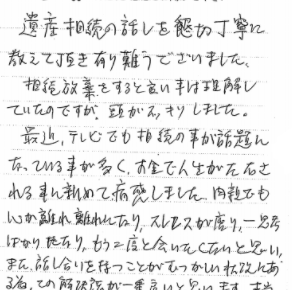 遺産相続の話しを懇切丁寧に
教えて頂き有り難うございました。
相続放棄をすると言い事は理解し
ていたのですが、頭がスッキリしました。
最近、テレビでも相続の事が話題に
なっている事が多く、お金で人生が左右さ
れる事に改めて痛感しました。肉親でも
心が離れ離れになり、ストレスが座り、一
ばかり、もう二度と会いたくないと思い、
また、話し合いを持つことがむつかしい状況にあ
る為、この解決策が一番良いと思います。